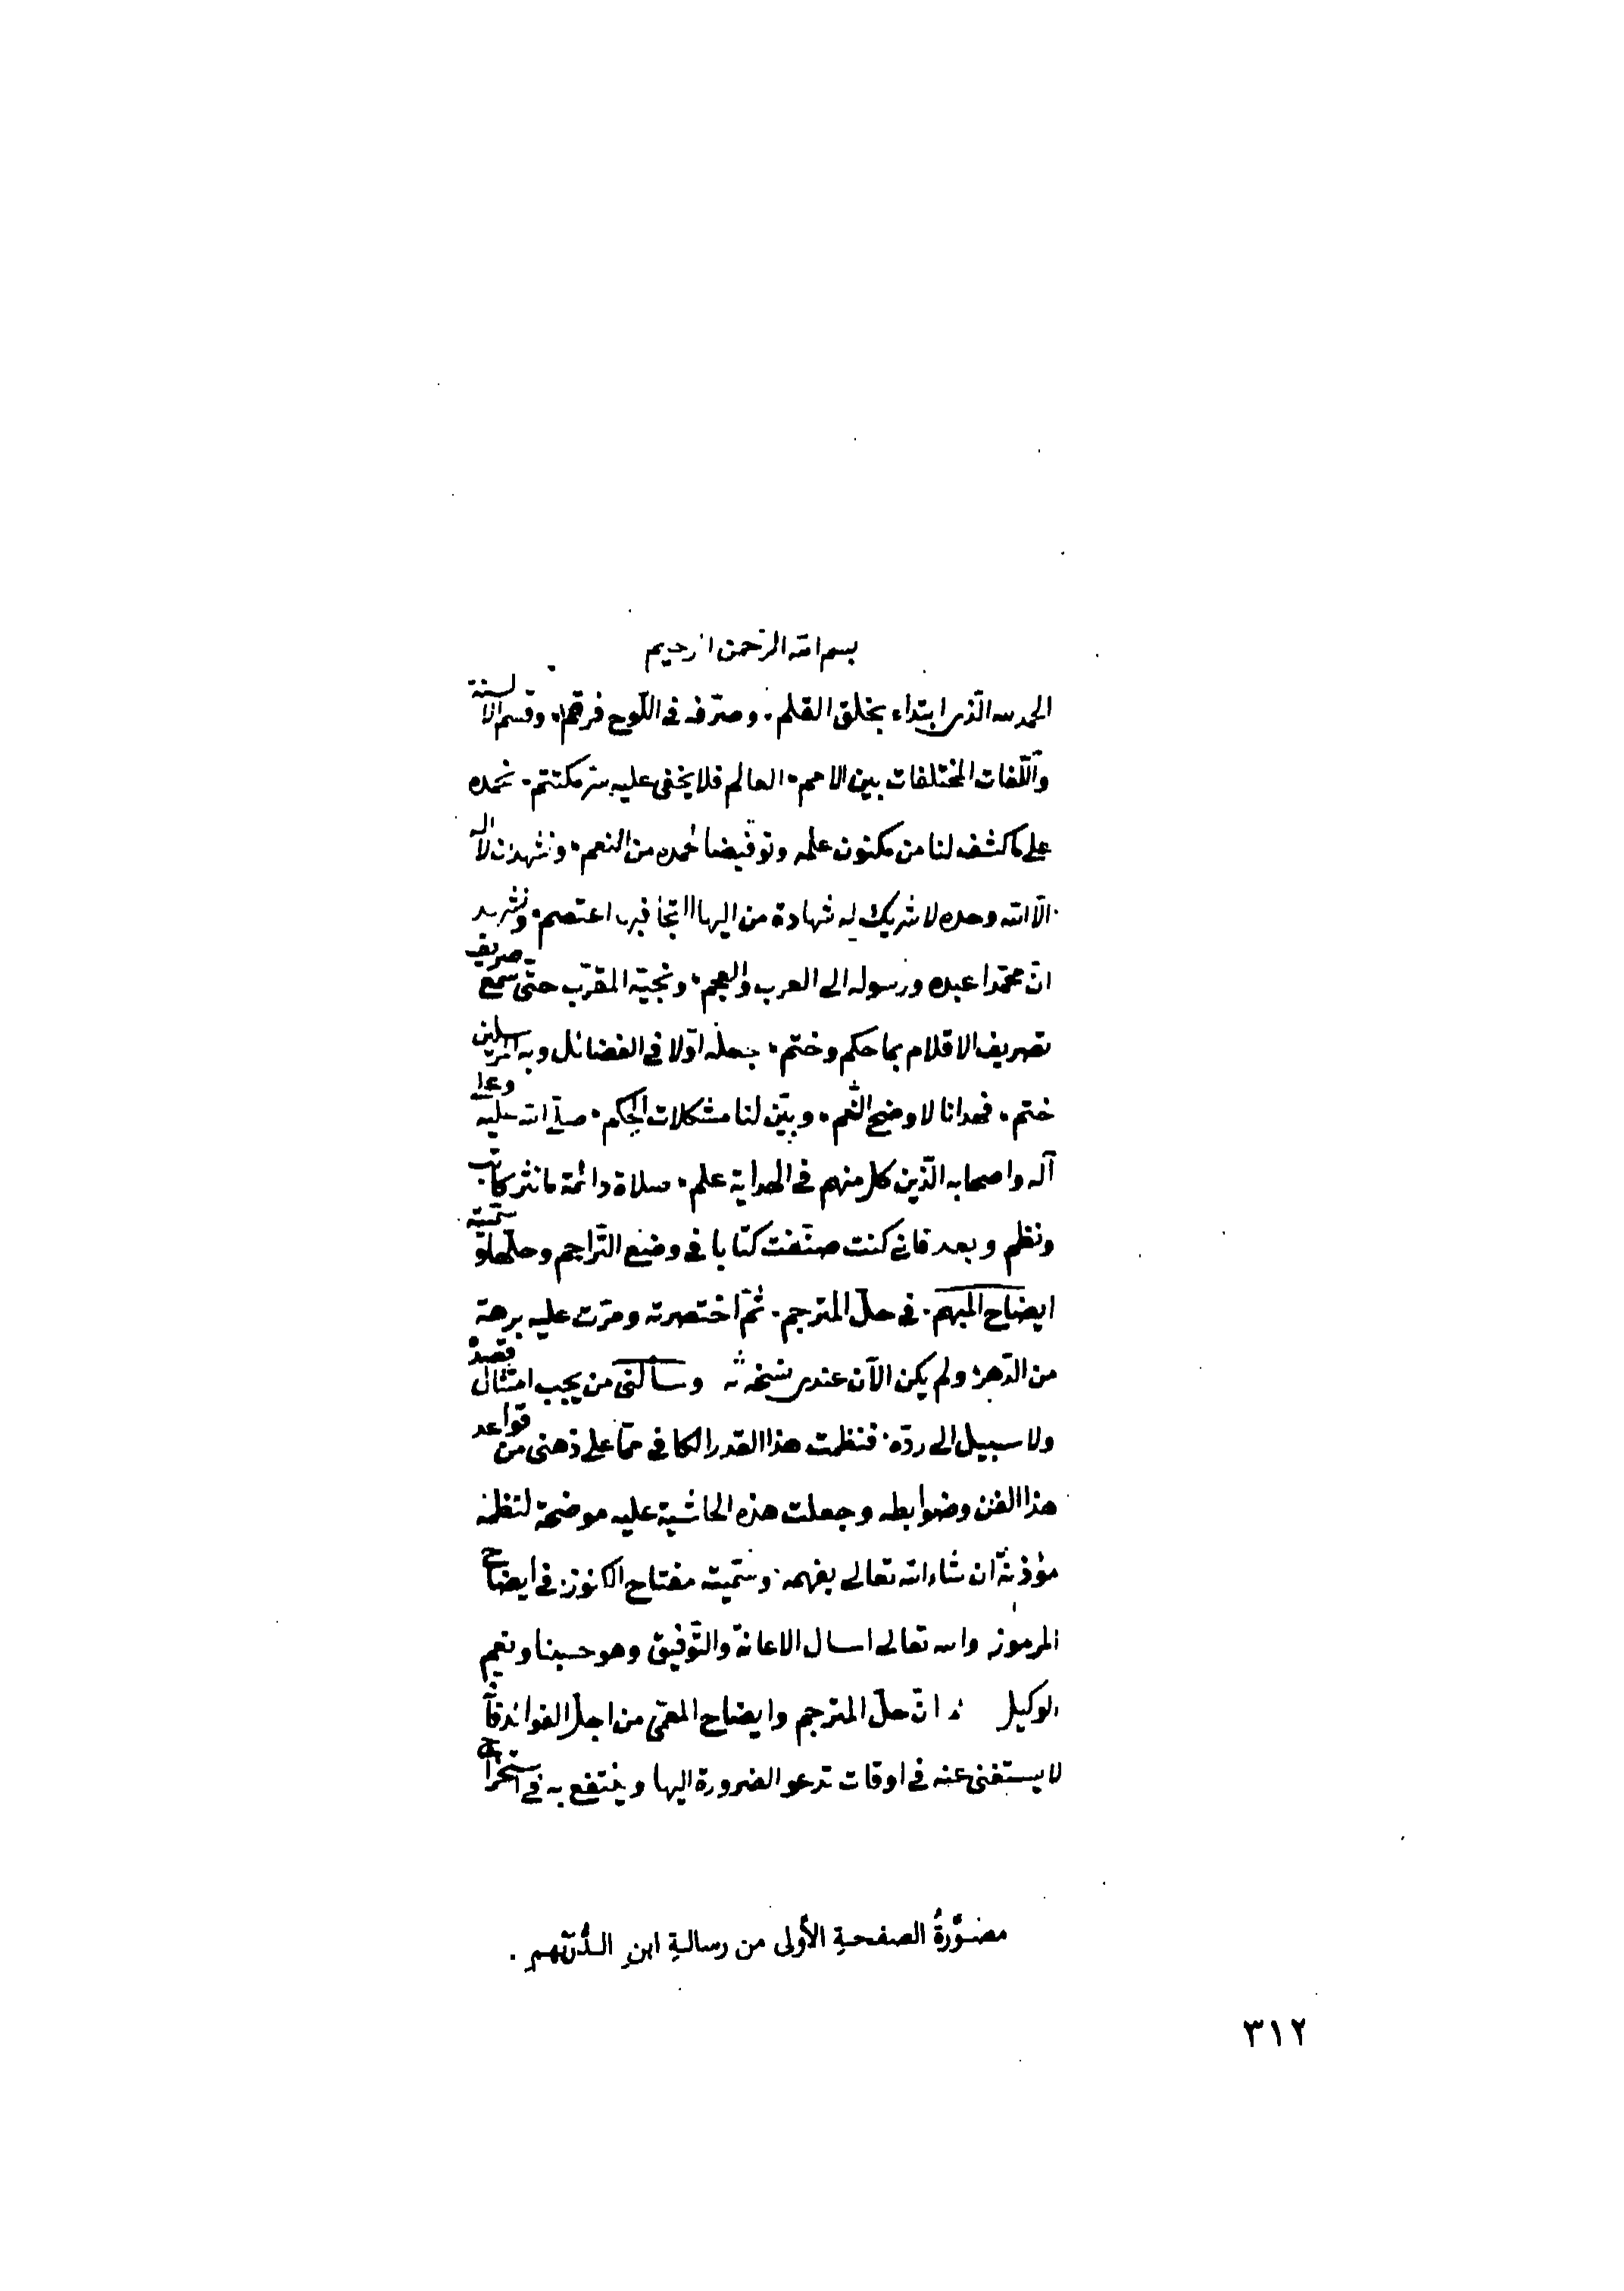 بسم الله الرحمن الرحيم
الحمد لله الذى ابتداء بخلق القلم . وصرّفه فى اللّوح فرقم . وقسم الالسنة
واللّغات المختلفات بين الامم . العالم فلا يخفى عليه سرّ مكتتم . نحمده
على ما كشف لنا من مكنون علمه وتوفيضا نحمده من النعم . ونشهد ان لا اله
الّا الله وحده لا شريك له شهادة من اليها التجأ فبها اعتصم . ونشهد
انّ محمّدا عبده ورسوله الى العرب والعجم . ونجيّه المقرّب حتى سمع صريف
تصريف الاقلام بما حكم وختم . جعله اوّلا فى الفضائل وبه المرسلين
ختم . فهدانا لاوضح اللّقم . وبيّن لنا مشكلات الحكم . صلّى الله عليه وعلى
آله واصحابه الّذين كل منهم فى الهداية علم . صلاة دائمة ما نثر كاتب
ونظم وبعد فانى كنت صنّفت كتابا فى وضع التّراجم وحلّها وسمّيته
ايضاح المبهم . فى حلّ المترجم . ثمّ اختصرته ومرّت عليه برهة
من الدّهر ولم يكن الآن عندى نسخة وسألنى من يجب امتثال قصده
ولا سبيل الى ردّه . فنظمت هذا القدر الكافى ممّا على ذهنى من قواعد
هذا الفن وضوابطه وجعلت هذه الحاشية عليه موضحة لنظمه
مؤذنة ان شاء الله تعالى بفهمه . وسمّيته مفتاح الكنوز فى ايضاح
المرموز والله تعالى اسال الاعانة والتّوفيق وهو حسبنا ونعم
الوكيل انّ حلّ المترجم وايضاح المعمّى من اجلّ الفوائد فانّه
لا يستغنى عنه فى اوقات تدعو الضرورة اليها وينتفع به فى استخراج
مصَوَّرةُ الصفحةِ الأُولى من رسالةِ ابنِ الدُّرَيْهِم .
٣١٢